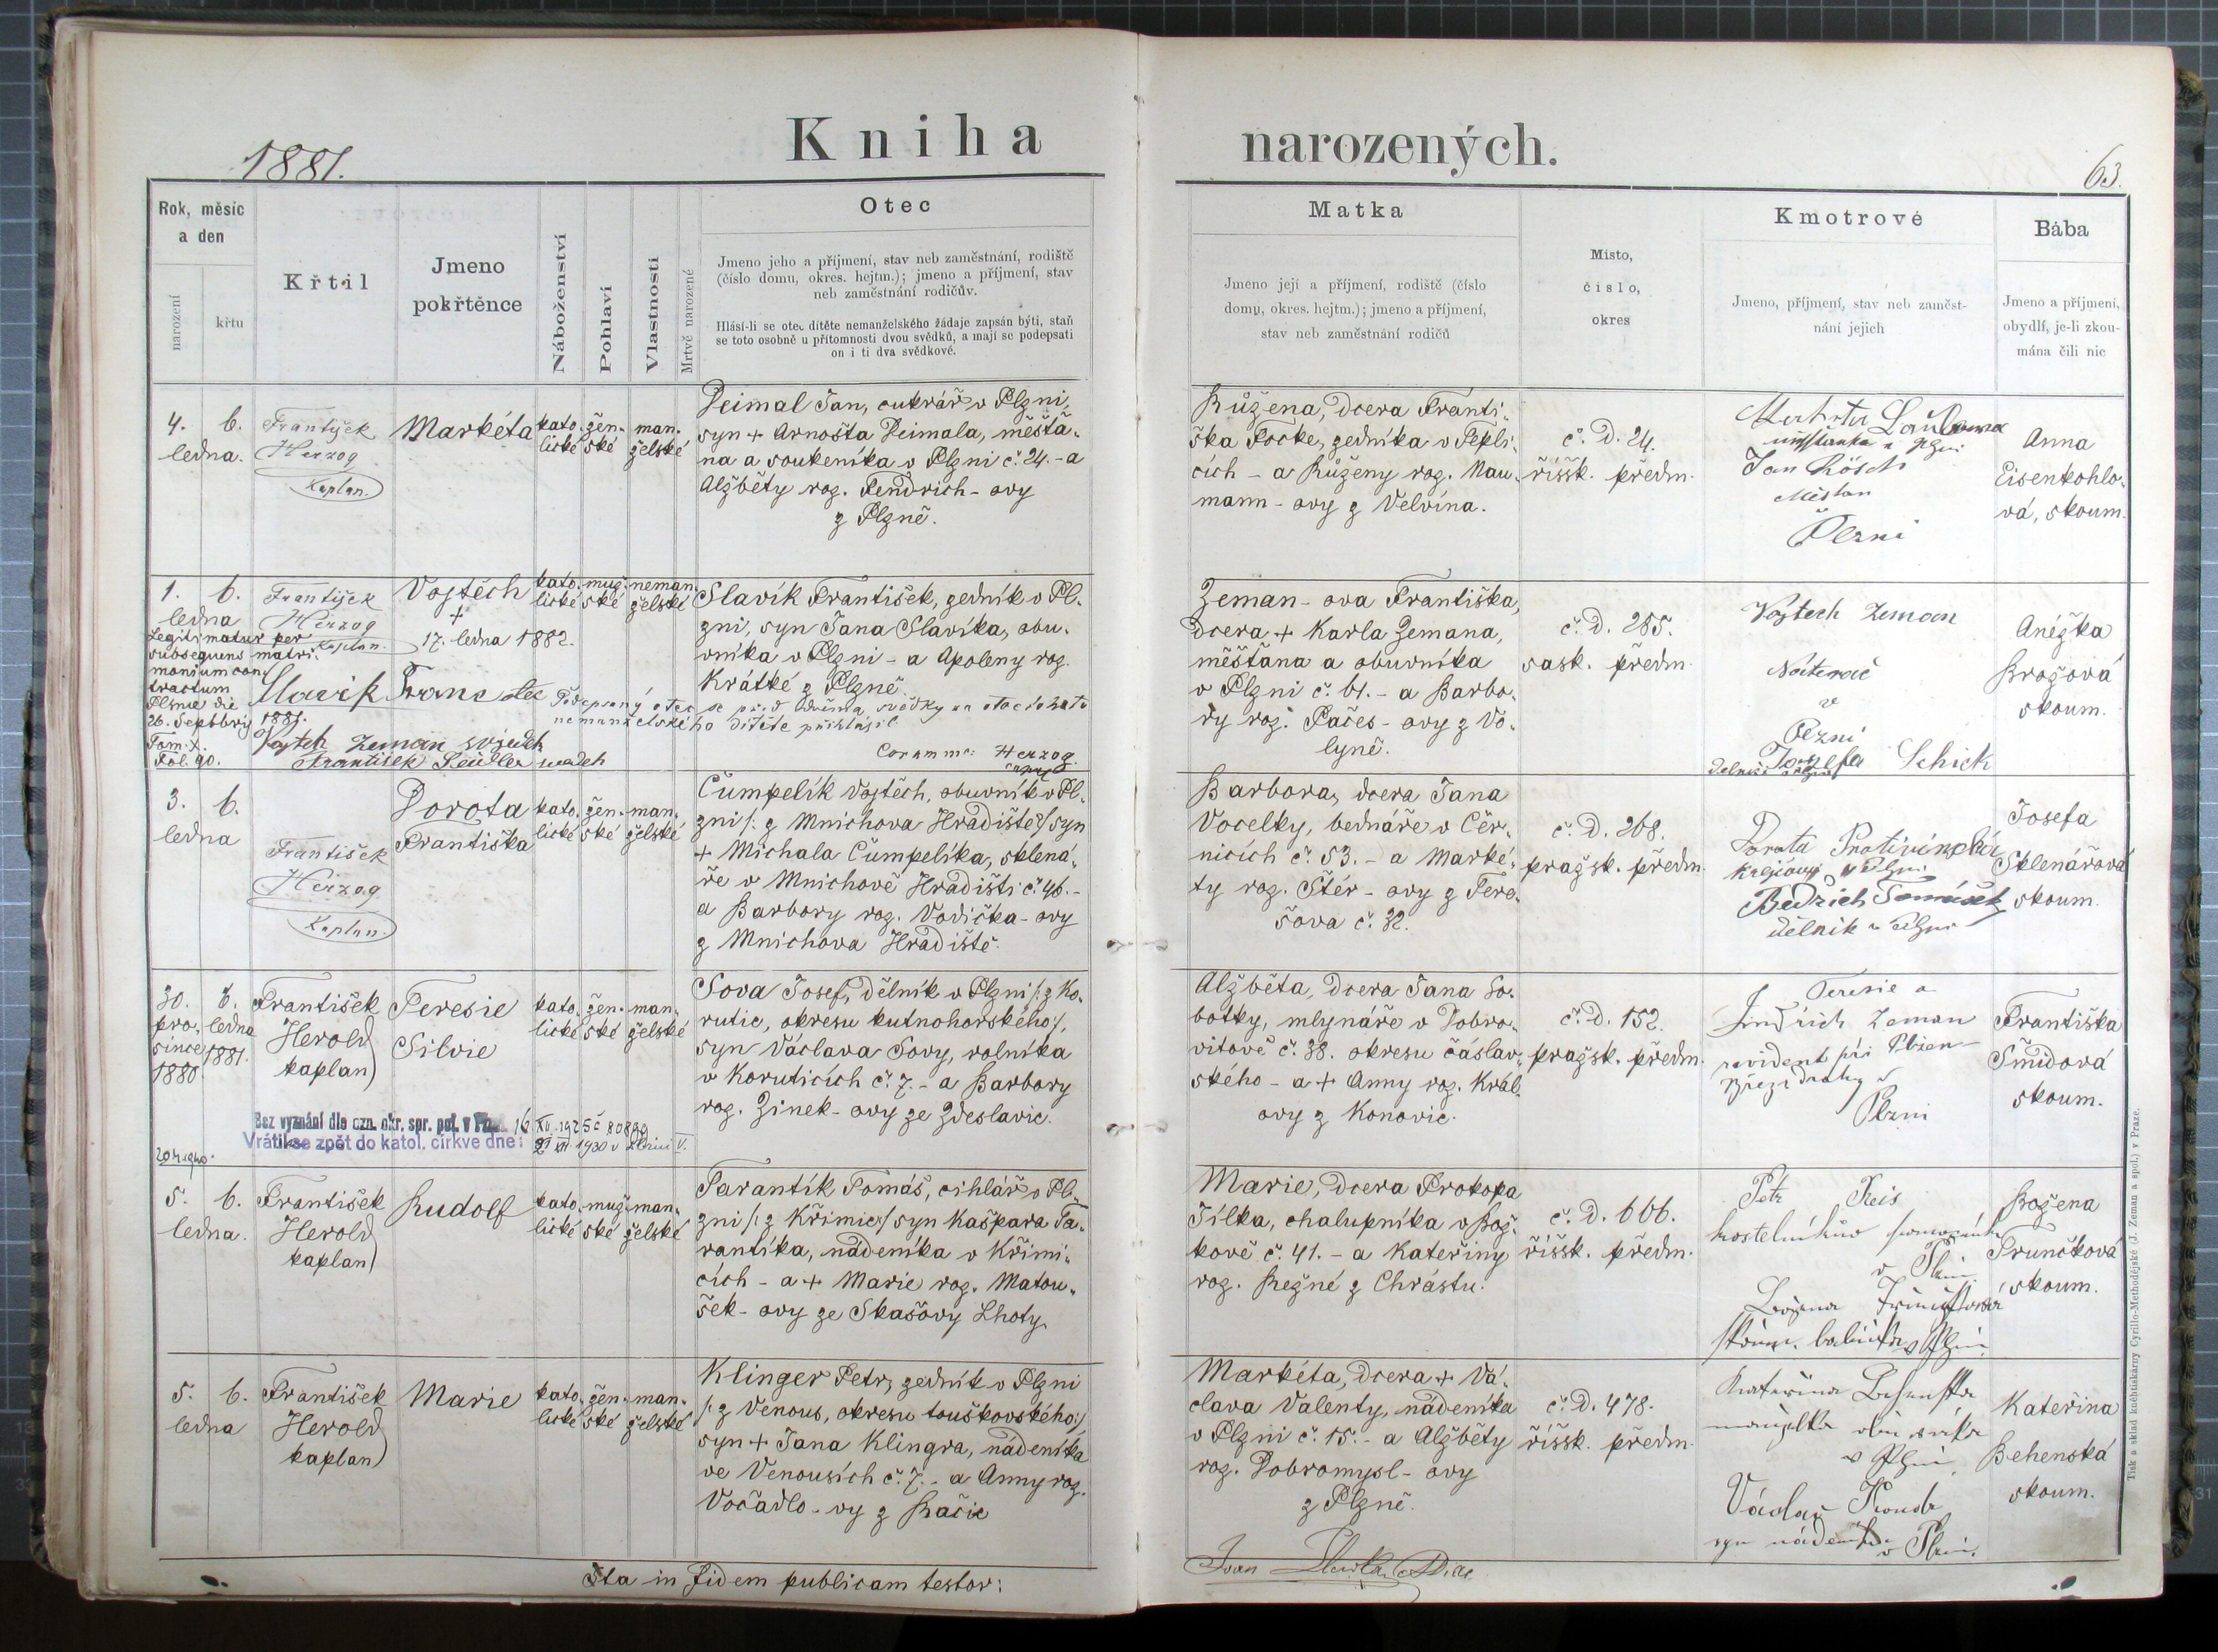 1881.
Kniha narozených.
63.
Rok, měsíc
a den
narození
křtu
Křtil
Jmeno
pokřtěnce
Náboženství
Pohlaví
Vlastnosti
Mrtvě narozené
Otec
Jmeno jeho a příjmení, stav neb zaměstnání, rodiště
(číslo domu, okres. hejtm.); jmeno a příjmení, stav
neb zaměstnání rodičův.
Hlásí-li se otec dítěte nemanželského žádaje zapsán býti, staň
se toto osobně u přítomnosti dvou svědků, a mají se podepsati
on i ti dva svědkové.
Matka
Jmeno její a příjmení, rodiště (číslo
domu, okres. hejtm.); jmeno a příjmení,
stav neb zaměstnání rodičů
Místo,
číslo,
okres
Kmotrové
Jmeno, příjmení, stav neb zaměst-
nání jejich
Bába
Jmeno a příjmení,
obydlí, je-li zkou-
mána čili nic
4. 6.
ledna.
František
Herzog
Kaplan.
Markéta
kato-
lické
žen-
ské
man-
želské
Deimal Jan, cukrář v Plzni,
syn + Arnošta Deimala, měšťa-
na a soukeníka v Plzni č. 24. - a
Alžběty roz. Fendrich - ovy
z Plzně.
Růžena, dcera Franti-
ška Focke, zedníka v Tepli-
cích - a Růženy roz. Nau-
mann - ovy z Velvína.
č. D. 24.
říšsk. předm.
Jan Rösch
Městan
Plzni
Anna
Eisenkohlo-
vá, skoum.
1. 6.
ledna
Legitimatur per
subsequens matri-
monium con-
tractum
Plsnae die
26. Septbris 1881.
Tom. X.
Fol. 90.
František
Herzog
Kaplan.
Vojtěch
+
17. ledna 1882.
kato-
lické
muž-
ské
neman-
želské
Slavík František, zedník v Pl-
zni, syn Jana Slavíka, obu-
vníka v Plzni - a Apoleny roz.
Krátké z Plzně.
Slavík Franc otec
Podepsaný otec se před dvěma svědky za otce tohoto
nemanželského dítěte přihlásil
Vojtch Zeman svědek
František Seidler svadeh
Coram me: Herzog
Zeman - ova Františka,
dcera + Karla Zemana,
měšťana a obuvníka
v Plzni č. 61. - a Barbo-
ry roz. Pačes - ovy z Vo-
lyně.
č. D. 285.
sask. předm.
Vojtech Zeman
v
Plzni
Josefa Schick
Anežka
Brožová
skoum.
3. 6.
ledna
František
Herzog
Kaplan.
Dorota
Františka
kato-
lické
žen-
ské
man-
želské
Čumpelík Vojtěch, obuvník v Pl-
zni /: z Mnichova Hradiště :/ syn
+ Michala Čumpelíka, sklená-
ře v Mnichově Hradišti č. 46. -
a Barbory roz. Vodička - ovy
z Mnichova Hradiště.
Barbora, dcera Jana
Vocelky, bednáře v Čer-
nicích č. 53. - a Marké-
ty roz. Štér - ovy z Tero-
šova č. 32.
č. D. 268.
pražsk. předm.
Dorota Protivínská
Bedřich Tomášek
dělník v Plzni
Josefa
Sklenářová
skoum.
30.
pro-
since
1880.
6.
ledna
1881.
František
Herold
kaplan
Teresie
Silvie
kato-
lické
žen-
ské
man-
želské
Sova Josef, dělník v Plzni /: z Ko-
rutic, okresu kutnohorského :/,
syn Václava Sovy, rolníka
v Koruticích č. 7. - a Barbory
roz. Zinek - ovy ze Zdeslavic.
Bez vyznání dle ozn. okr. spr. pol. v Plz. 16 XII. 1925 č 80890
Vrátil se zpět do katol. církve dne: 21 XII 1930 v Plzni V.
Alžběta, dcera Jana So-
botky, mlynáře v Dobro-
vitově č. 38. okresu čáslav-
ského - a + Anny roz. Král-
ovy z Konovic.
č. D. 152.
pražsk. předm.
Teresie a
Jindřich Zeman
revident při Plzen-
Březi dráhy v
Plzni
Františka
Šmídová
skoum.
5. 6.
ledna.
František
Herold
kaplan
Rudolf
kato-
lické
muž-
ské
man-
želské
Tarantík Tomáš, cihlář v Pl-
zni /: z Křimic :/ syn Kašpara Ta-
rantíka, nádeníka v Křimi-
cích - a + Marie roz. Matou-
šek - ovy ze Skašovy Lhoty.
Marie, dcera Prokopa
Jílka, chalupníka v Bož-
kově č. 41. - a Kateřiny
roz. Režné z Chrástu.
č. D. 606.
říšsk. předm.
Petr Reis
v Plzni
Božena Trunčková
skoum. babička v Plzni
Božena
Trunčková
skoum.
5. 6.
ledna
František
Herold
kaplan
Marie
kato-
lické
žen-
ské
man-
želské
Klinger Petr, zedník v Plzni
/: z Venous, okresu touškovského :/
syn + Jana Klingra, nádeníka
ve Venousích č. 7. - a Anny roz.
Vočadlo - vy z Račic
Markéta, dcera + Vá-
clava Valenty, nádeníka
v Plzni č. 15. - a Alžběty
roz. Dobromysl - ovy
z Plzně.
č. D. 478.
říšsk. předm.
Kateřina Behenská
manželka obuvníka
v Plzni
Václav
syn nádeníka v Plzni.
Kateřina
Behenská
skoum.
Ita in fidem publicam testor:
Tisk a sklad knihtiskárny Cyrillo-Methodějské (J. Zeman a spol.) v Praze.